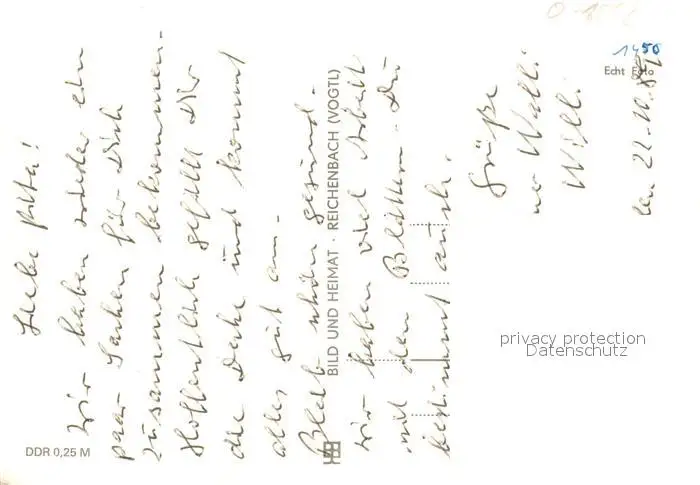 Liebe Rita!
Wir haben wieder ein
paar Sachen für Dich
zusammen bekommen.
Hoffentlich gefällt Dir
die Decke und kommt
alles gut an.
Bleib schön gesund.
Wir haben viel Arbeit
mit den Blättern. Du
bestimmt auch.
Grüße
Walli
Willi
den 22.10.89
BILD UND HEIMAT · REICHENBACH (VOGTL)
DDR 0,25 M
Echt Foto
1450
privacy protection
Datenschutz